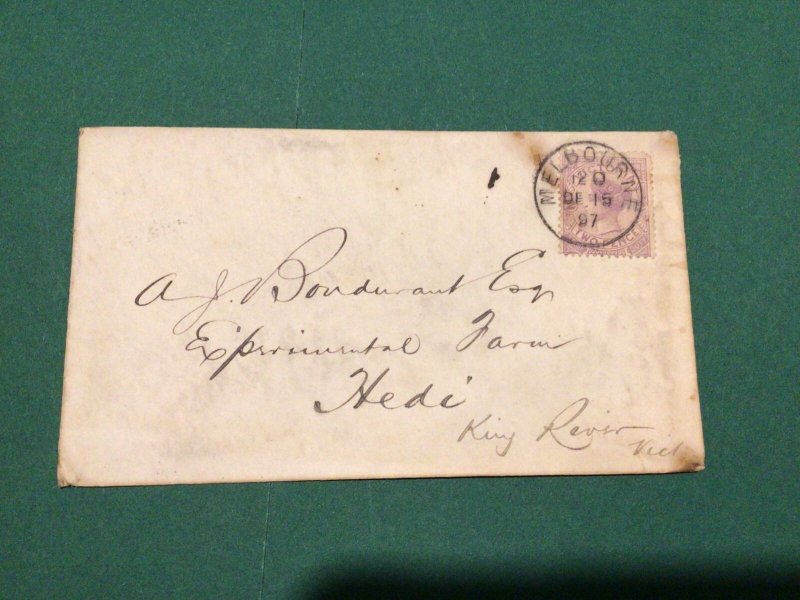 MELBOURNE
12 O
DE 15
97
TWO PENCE
A J. Bondurant Esq
Experimental Farm
Hedi
King River
Vict